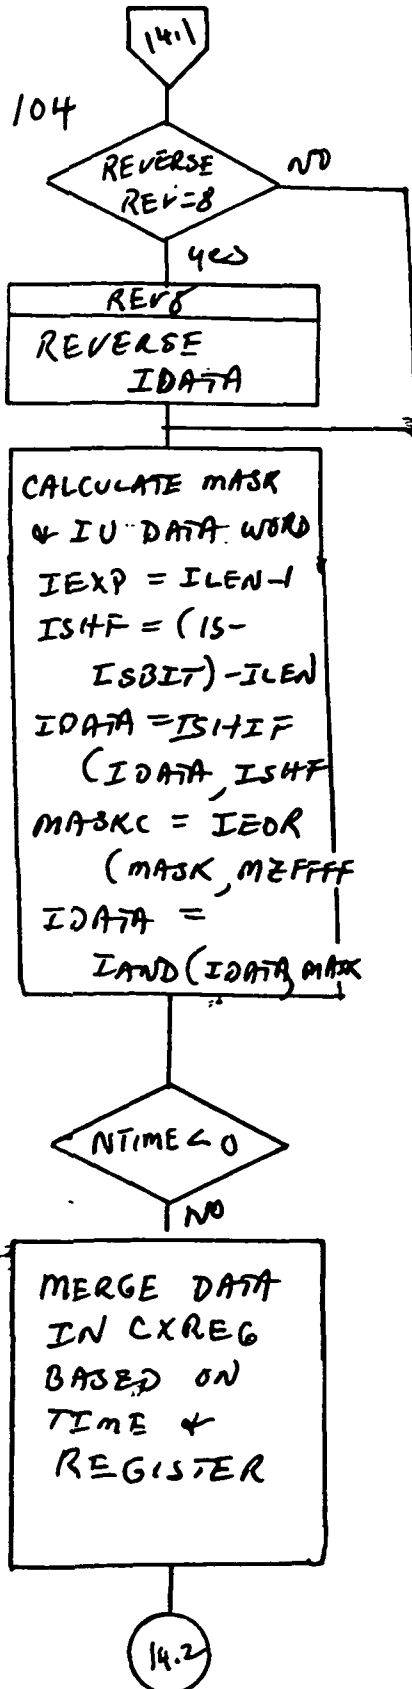 14.1
104
REVERSE
REV=8
NO
yes
REV8
REVERSE
IDATA
CALCULATE MASK
& IU DATA WORD
IEXP = ILEN-1
ISHF = (15-
ISBIT)-ILEN
IDATA = ISHIF
(IDATA, ISHF
MASKC = IEOR
(MASK, MZFFFF
IDATA =
IAND(IDATA, MASK
NTIME < 0
NO
MERGE DATA
IN CXREG
BASED ON
TIME &
REGISTER
14.2